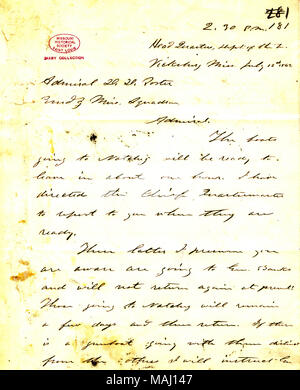 181
2.30 P.M. 181
MISSOURI
HISTORICAL
SOCIETY
SAINT LOUIS
DIARY COLLECTION
Head Quarters, Dept. of the T.
Vicksburg Miss. July
Admiral D. D. Porter
Comd'g Miss. Squadron
Admiral,
The boats
going to Natchez will be ready to
leave in about one hour. I have
directed the Chief Quartermaster
to report to you when they are
ready.
These latter I presume you
are aware are going to Gen. Banks
and will not return again at present.
Those going to Natchez will remain
a few days and then return. If there
is a gunboat going with them
from the others I will instruct
alamy
Image ID: MAJ147
www.alamy.com